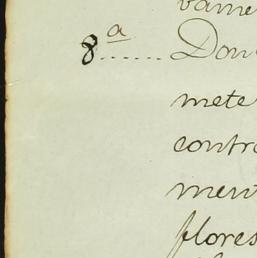 8ª...... Don
mete
contr
ment
flores